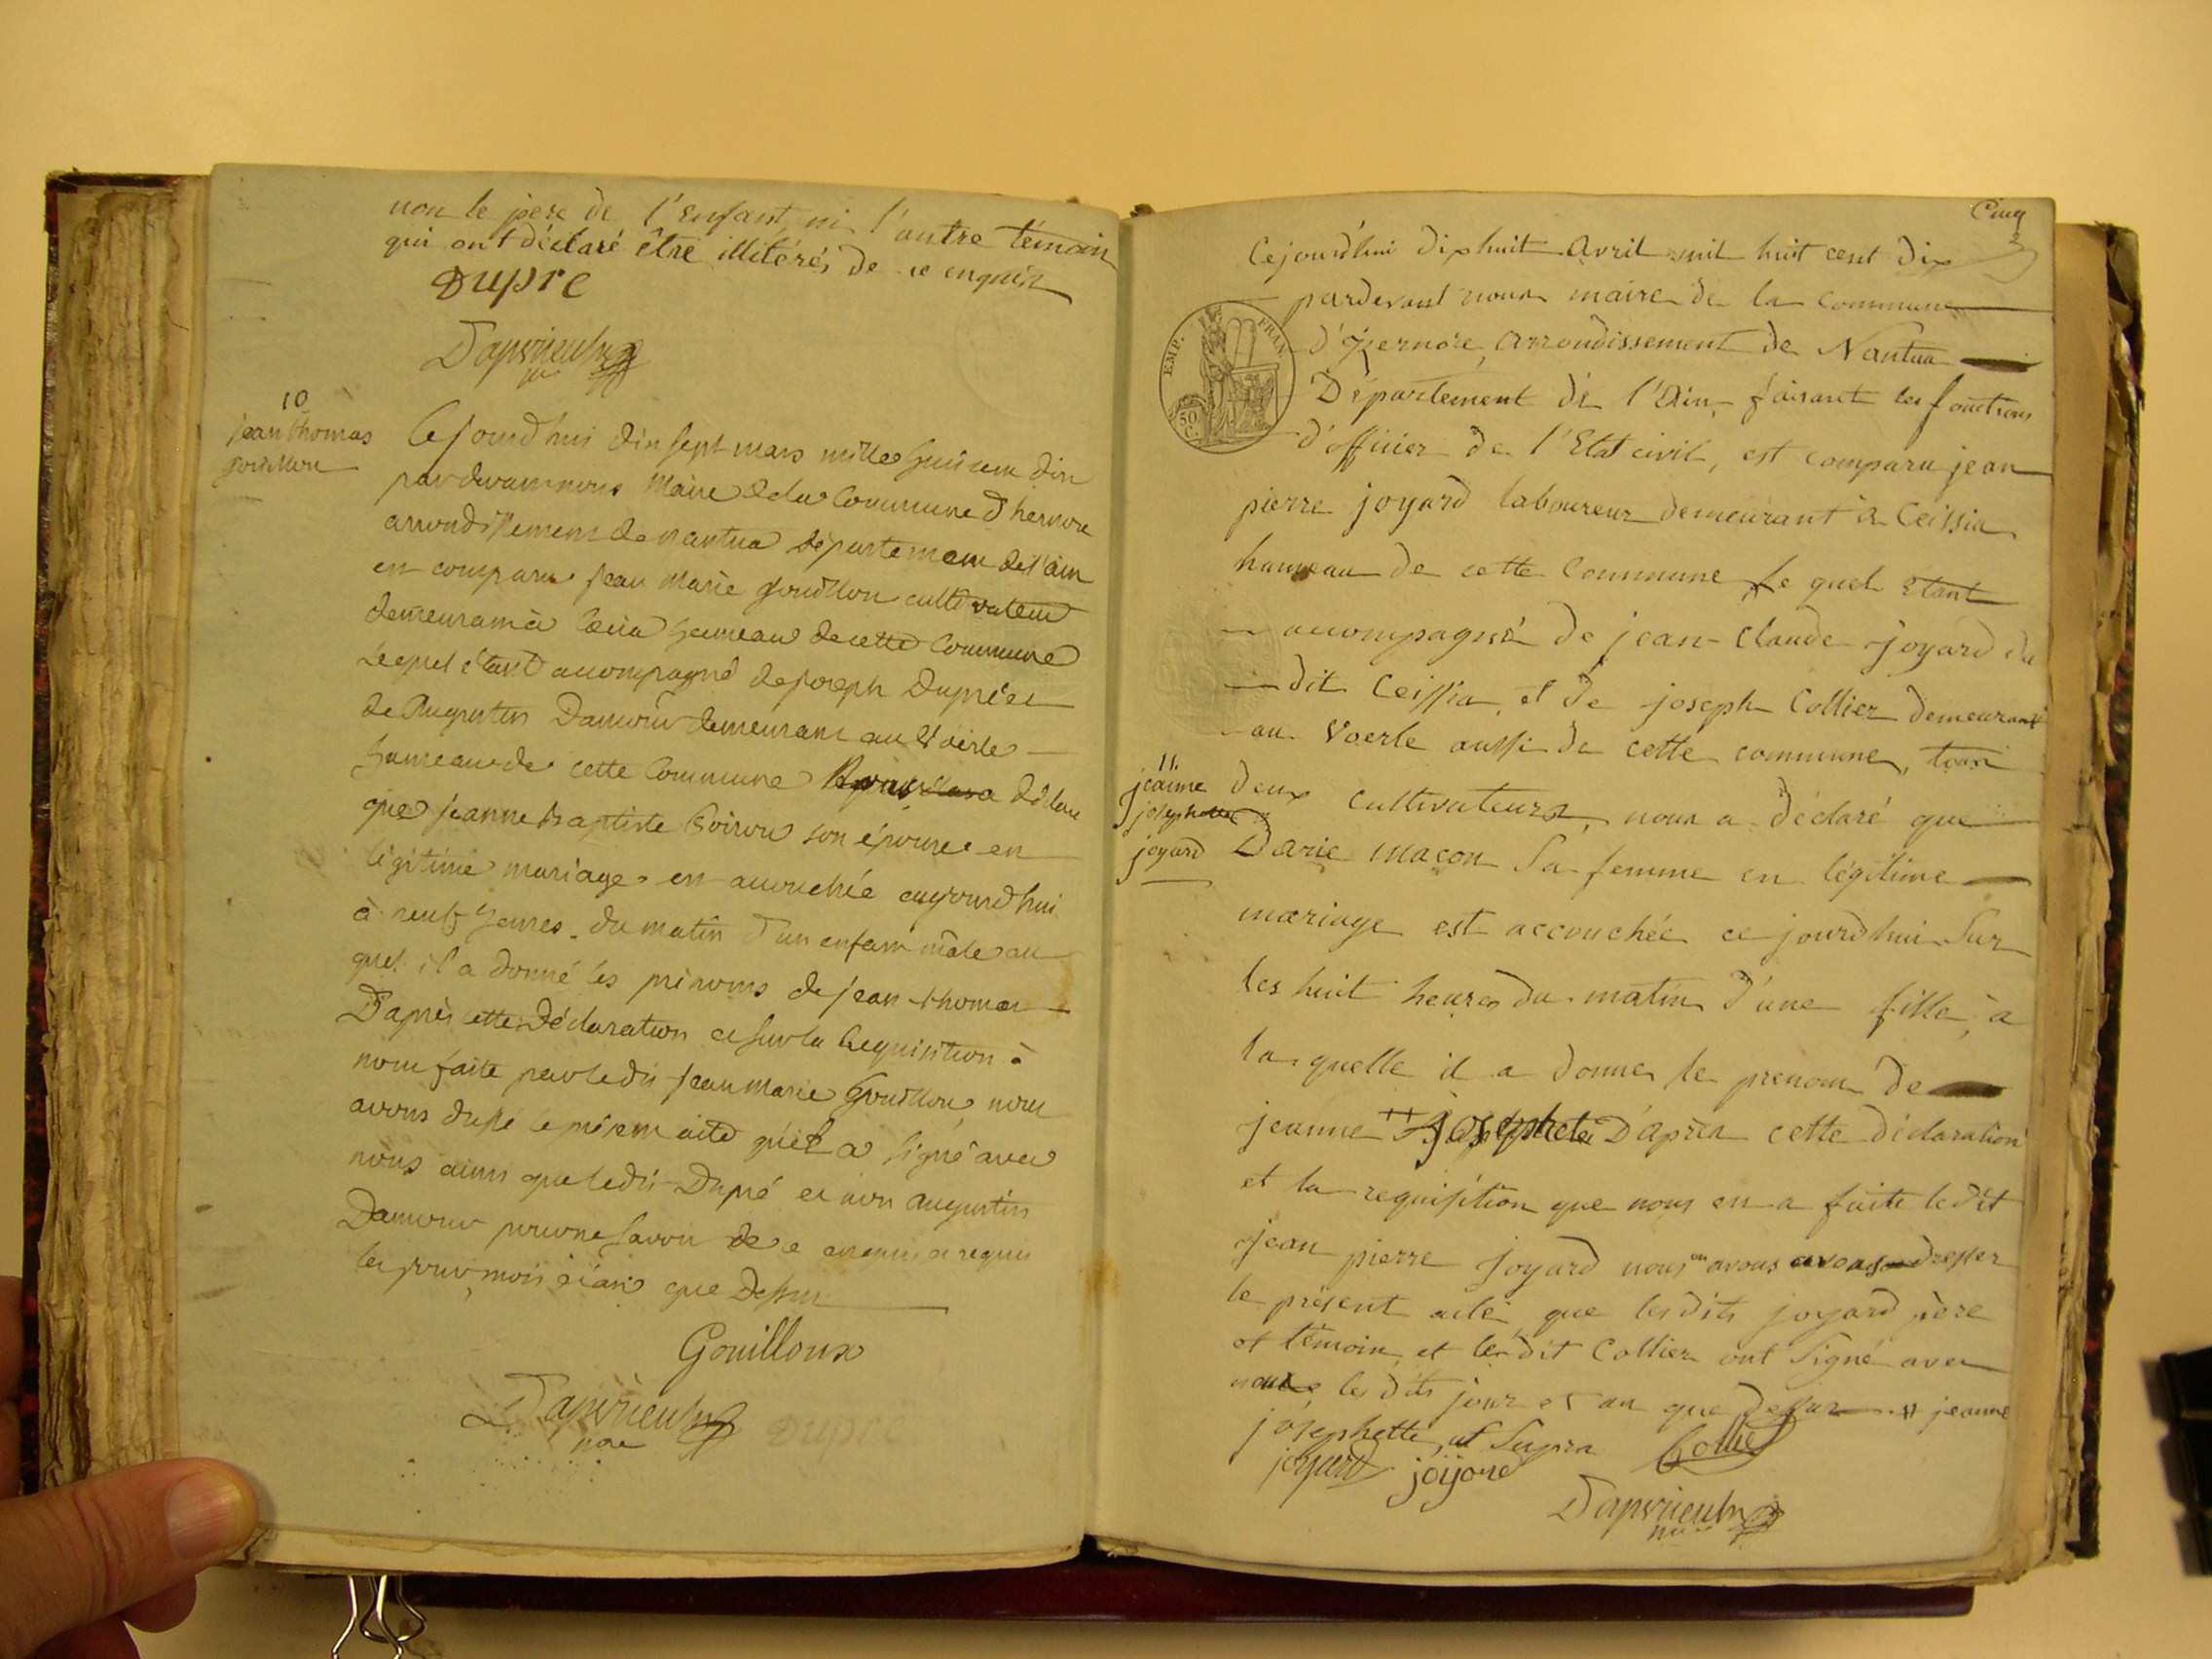 non le pere de l'enfant, ni l'autre témoin
qui ont déclaré être illitérés de ce enquis
Dupre
10
jean thomas
gouillon
Cejourdhui dix sept mars mille huit cent dix
pardevant nous Maire de la Commune d'hernore
arrondissement de nantua département de l'ain
est comparu jean Marie gouillon cultivateur
demeurant à Ceissia hameau de cette Commune
Lequel étant accompagné de joseph Dupré et
de Augustin Damour demeurant au Voerle
hameau de cette Commune déclare
que jeanne Baptiste Poiron son épouse en
légitime mariage est accouchée aujourd'hui
à neuf heures du matin d'un enfant mâle au
quel il a donné les prénoms de jean thomas
D'après cette Déclaration et sur la Requisition à
nous faite par ledit jean Marie Gouillon nous
avons dressé le présent acte qu'il a signé avec
nous ainsi que ledit Dupré et non augustin
Damour pour ne savoir de ce enquis et requis
les jour, mois et an que Dessus
Gouilloux
Dupré
Cinq
Cejourd'hui dix huit avril mil huit cent dix
pardevant nous maire de la commune
d'izernore, arrondissement de Nantua
EMP. FRAN.
50 C.
Département de l'Ain, faisant les fonctions
d'officier de l'Etat civil, est comparu jean
pierre joyard laboureur demeurant à Ceissia
hameau de cette Commune, le quel étant
accompagné de jean-claude joyard du
dit Ceissia, et de joseph Collier demeurant
au Voerle aussi de cette commune, tous
11.
jeanne
josephette
joyard
deux cultivateurs, nous a déclaré que
Marie maçon sa femme en légitime
mariage est accouchée ce jourd'hui sur
les huit heures du matin d'une fille, à
la quelle il a donner le prenom de
jeanne ++ josephete D'après cette déclaration
et la requisition que nous en a faite le dit
jean pierre joyard nous en avons avons dresser
le présent acte, que les dits joyard père
et témoin, et le dit Collier ont signé avec
nous, les dits jour et an que dessus. ++ jeanne
josephette, ut supra Collier
joyard joyard